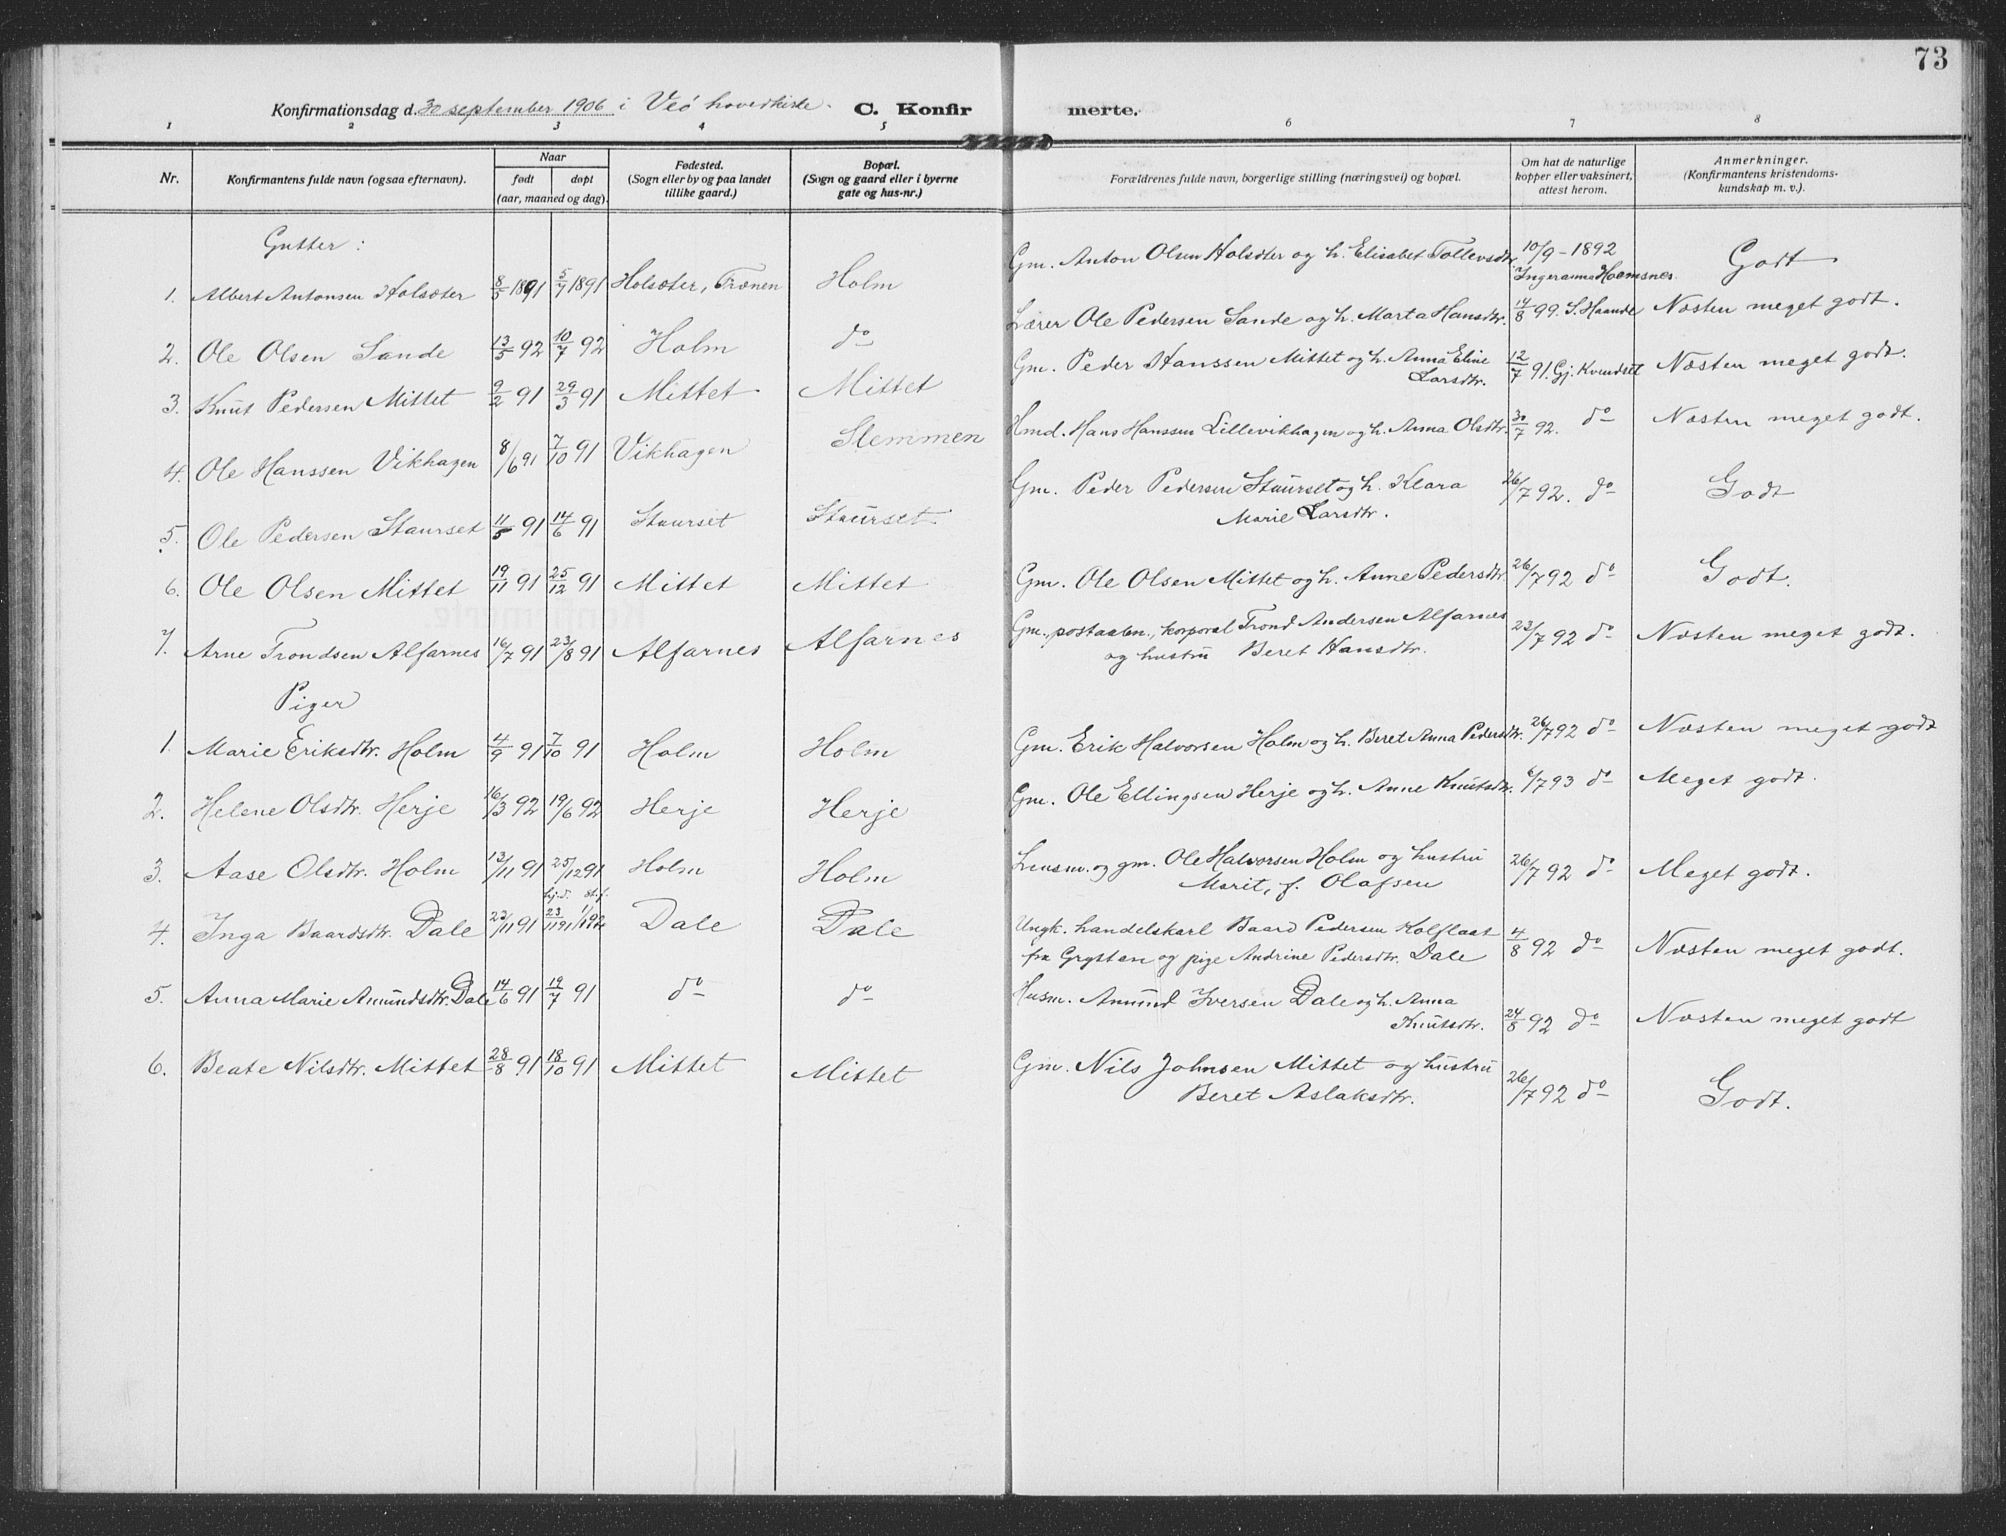 73
Konfirmationsdag d. 30 september 1906 i Veö hovedkirke. C. Konfirmerte.
1 2 3 4 5 6 7 8
Nr. Konfirmantens fulde navn (ogsaa efternavn). Naar født døpt (aar, maaned og dag). Fødested. (Sogn eller by og paa landet tillike gaard.) Bopæl. (Sogn og gaard eller i byerne gate og hus-nr.) Forældrenes fulde navn, borgerlige stilling (næringsvei) og bopæl. Om hat de naturlige kopper eller vaksinert, attest herom. Anmerkninger. (Konfirmantens kristendoms-kundskap m. v.).
Gutter:
1. Albert Antonsen Holsæter 8/5 1891 5/7 1891 Holsæter, Holm Gm. Anton Olsen Holsæter og h. Elisabet Tollevsdtr. 10/9-1892 Godt
2. Ole Olsen Sande 13/5 92 10/7 92 Holm do Lærer Ole Pedersen Sande og h. Marta Hansdtr. 14/8 99. S. Haande Næsten meget godt.
3. Knut Pedersen Mittet 9/2 91 29/3 91 Mittet Mittet Gm. Peder Hanssen Mittet og h. Anna Eline Larsdtr. 12/7 91. Gj. Kvendset Næsten meget godt.
4. Ole Hanssen Vikhagen 8/6 91 7/10 91 Vikhagen Slemmen Hmd. Hans Hanssen Lillevikhagen og h. Anna Olsdtr. 30/7 92. do Næsten meget godt.
5. Ole Pedersen Staurset 11/5 91 14/6 91 Staurset Staurset Gm. Peder Pedersen Staurset og h. Klara Marie Larsdtr. 26/7 92. do Godt
6. Ole Olsen Mittet 19/11 91 25/12 91 Mittet Mittet Gm. Ole Olsen Mittet og h. Anne Pedersdtr. 26/7 92 do Godt.
7. Arne Trondsen Alfarnes 16/7 91 23/8 91 Alfarnes Alfarnes Gm., postaabn., korporal Trond Andersen Alfarnes og hustru Beret Hansdtr. 23/7 92 do Næsten meget godt.
Piger
1. Marie Eriksdtr. Holm 4/9 91 7/10 91 Holm Holm Gm. Erik Halvorsen Holm og h. Beret Anna Pedersdtr. 26/7 92 do Næsten meget godt
2. Helene Olsdtr. Herje 16/3 92 19/6 92 Herje Herje Gm. Ole Ellingsen Herje og h. Anne Knutsdtr. 6/7 93 do Meget godt.
3. Aase Olsdtr. Holm 13/11 91 25/12 91 Holm Holm Lensm. og gm. Ole Halvorsen Holm og hustru Marit, f. Olafsen 26/7 92 do Meget godt.
4. Inga Baardsdtr. Dale 22/11 91 hj.d. 23/11 91 st.f. Dale Dale Ungk. handelskarl Baard Pedersen Kolflaat fra Grytten og pige Andrine Pedersdtr. Dale 4/8 92 do Næsten meget godt.
5. Anna Marie Amundsdtr. Dale 14/6 91 19/7 91 do do Husm. Amund Iversen Dale og h. Anna Knutsdtr. 24/8 92 do Næsten meget godt
6. Beate Nilsdtr. Mittet 28/8 91 18/10 91 Mittet Mittet Gm. Nils Johnsen Mittet og hustru Beret Aslaksdtr. 26/7 92 do Godt.